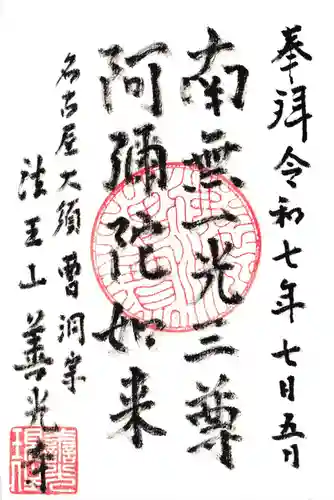 奉拝令和七年七月五日
南無一光三尊
阿彌陀如来
名古屋大須曹洞宗
法王山善光寺